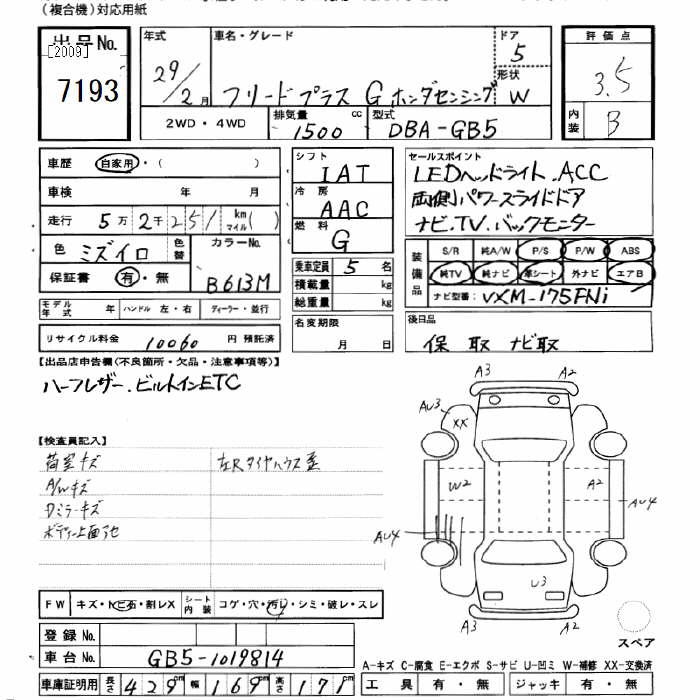 (複合機)対応用紙
出品No.
[2009]
7193
年式
29/2月
車名・グレード
フリードプラス G ホンダセンシング
ドア
5
形状
W
評価点
3.5
内装
B
2WD・4WD
排気量
1500 cc
型式
DBA-GB5
車歴
自家用・( )
車検 年 月
走行 5万2千251 km マイル ( )
色 ミズイロ
色替
カラーNo.
B613M
保証書 有・無
シフト
IAT
冷房
AAC
燃料
G
乗車定員 5 名
積載量 kg
総重量 kg
セールスポイント
LEDヘッドライト.ACC
両側パワースライドドア
ナビ.TV.バックモニター
装備品
S/R 純A/W P/S P/W ABS
純TV 純ナビ 革シート 外ナビ エアB
ナビ型番: VXM-175FNi
モデル年式 年 ハンドル 左・右 ディーラー・並行
リサイクル料金 10060 円 預託済
名変期限
月 日
後日品
保 取 ナビ取
【出品店申告欄(不良箇所・欠品・注意事項等)】
ハーフレザー.ビルトインETC
【検査員記入】
荷室キズ
左Rタイヤハウス歪
A/Wキズ
Dミラーキズ
FW キズ・トビ石・割レX
シート内装 コゲ・穴・汚レ・シミ・破レ・スレ
登録No.
車台No. GB5-1019814
車庫証明用 長さ 429cm 幅 169cm 高さ 171cm
A3 A2
AU3
XX
W2
A2
AU4
AU4
U3
A3 A2
スペア
A-キズ C-腐食 E-エクボ S-サビ U-凹ミ W-補修 XX-交換済
工具 有・無 ジャッキ 有・無